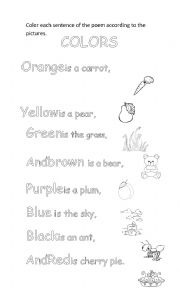 Color each sentence of the poem according to the
pictures.
COLORS
Orangeis a carrot,
Yellowis a pear,
Greenis the grass,
Andbrown is a bear,
Purpleis a plum,
Blue is the sky,
Blackis an ant,
AndRedis cherry pie.